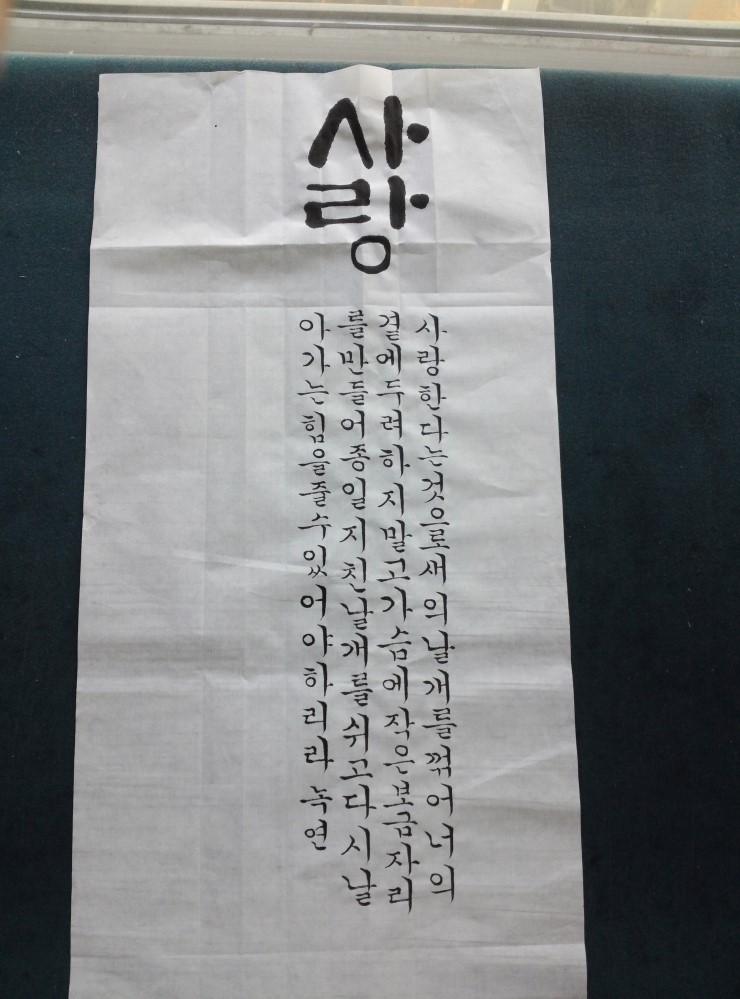 사랑
사랑한다는것으로새의날개를꺾어너의
곁에두려하지말고가슴에작은보금자리
를만들어종일지친날개를쉬고다시날
아가는힘을줄수있어야하리라 녹연